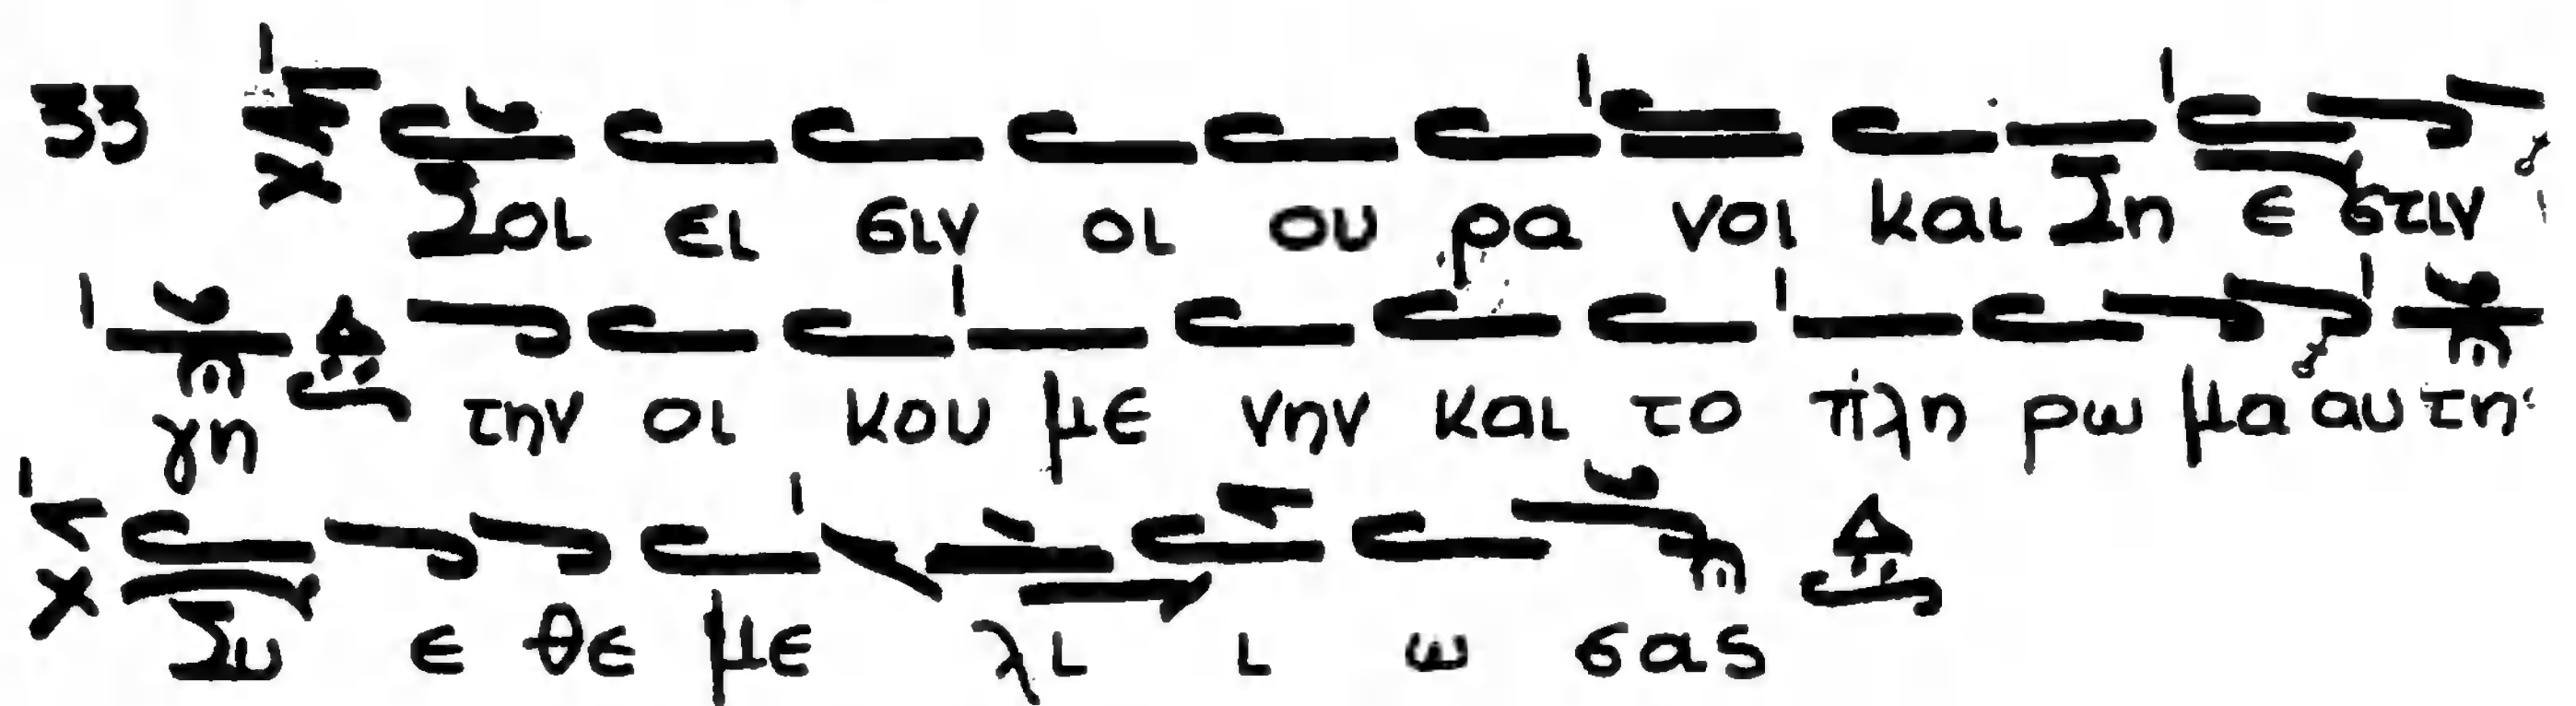 33 Σοι ει σιν οι ου ρα νοι και Ση ε στιν
γη την οι κου με νην και το πλη ρω μα αυ της
Συ ε θε με λι ι ω σας